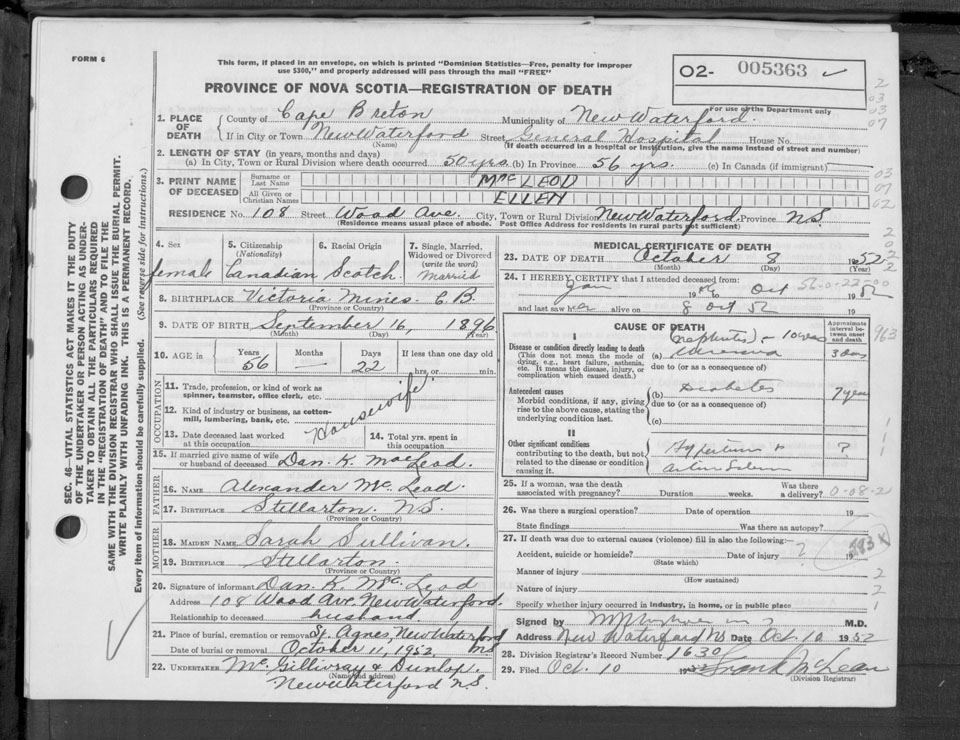 FORM 6
This form, if placed in an envelope, on which is printed "Dominion Statistics—Free, penalty for improper
use $300," and properly addressed will pass through the mail "FREE"
PROVINCE OF NOVA SCOTIA—REGISTRATION OF DEATH
02- 005363 ✓
For use of the Department only
1. PLACE OF DEATH
County of Cape Breton Municipality of New Waterford.
If in City or Town New Waterford Street General Hospital House No.
(Name) (If death occurred in a hospital or institution, give the name instead of street and number)
2. LENGTH OF STAY (in years, months and days)
(a) In City, Town or Rural Division where death occurred 50 yrs. (b) In Province 56 yrs. (c) In Canada (if immigrant)
3. PRINT NAME OF DECEASED
Surname or Last Name MacLEOD
All Given or Christian Names ELLEN
RESIDENCE No. 108 Street Wood Ave. City, Town or Rural Division New Waterford Province N.S.
(Residence means usual place of abode. Post Office Address for residents in rural parts not sufficient)
4. Sex female
5. Citizenship (Nationality) Canadian
6. Racial Origin Scotch
7. Single, Married, Widowed or Divorced (write the word) Married
8. BIRTHPLACE Victoria Mines. C.B.
(Province or Country)
9. DATE OF BIRTH September 16, 1896
(Month) (Day) (Year)
10. AGE in Years 56 Months — Days 22 If less than one day hrs. or min.
OCCUPATION
11. Trade, profession, or kind of work as spinner, teamster, office clerk, etc.
Housewife
12. Kind of industry or business, as cotton-mill, lumbering, bank, etc.
13. Date deceased last worked at this occupation
14. Total yrs. spent in this occupation
15. If married give name of wife or husband of deceased Dan. K. MacLeod.
FATHER
16. NAME Alexander McLeod.
17. BIRTHPLACE Stellarton. N.S.
(Province or Country)
MOTHER
18. MAIDEN NAME Sarah Sullivan.
19. BIRTHPLACE Stellarton.
(Province or Country)
20. Signature of informant Dan. K. McLeod
Address 108 Wood Ave. New Waterford.
Relationship to deceased husband
21. Place of burial, cremation or removal St. Agnes, New Waterford
Date of burial or removal October 11, 1952. NS
22. UNDERTAKER McGillivray & Dunlop.
(Name and address)
New Waterford N.S.
MEDICAL CERTIFICATE OF DEATH
23. DATE OF DEATH October 8 1952
(Month) (Day) (Year)
24. I HEREBY CERTIFY that I attended deceased from:
Jan 19 to Oct 1952
and last saw her alive on 8 Oct 52 19
CAUSE OF DEATH
Approximate interval between onset and death
I
Disease or condition directly leading to death
(This does not mean the mode of dying, e.g., heart failure, asthenia, etc. It means the disease, injury, or complication which caused death.)
(a) 3 days
due to (or as a consequence of)
Antecedent causes
Morbid conditions, if any, giving rise to the above cause, stating the underlying condition last.
(b) Diabetes 7 years
due to (or as a consequence of)
(c)
II
Other significant conditions
contributing to the death, but not related to the disease or condition causing it.
?
25. If a woman, was the death associated with pregnancy? Duration weeks. Was there a delivery? 0-08-2
26. Was there a surgical operation? Date of operation 19
State findings Was there an autopsy?
27. If death was due to external causes (violence) fill in also the following:—
Accident, suicide or homicide? Date of injury ? 19
(State which)
Manner of injury
(How sustained)
Nature of injury
Specify whether injury occurred in industry, in home, or in public place
Signed by M.D.
Address New Waterford NS Date Oct. 10 1952
28. Division Registrar's Record Number 1630
29. Filed Oct. 10 1952 Frank McLean
(Division Registrar)
SEC. 46—VITAL STATISTICS ACT MAKES IT THE DUTY
OF THE UNDERTAKER OR PERSON ACTING AS UNDER-
TAKER TO OBTAIN ALL THE PARTICULARS REQUIRED
IN THE "REGISTRATION OF DEATH" AND TO FILE THE
SAME WITH THE DIVISION REGISTRAR WHO SHALL ISSUE THE BURIAL PERMIT.
WRITE PLAINLY WITH UNFADING INK. THIS IS A PERMANENT RECORD.
Every item of information should be carefully supplied. (See reverse side for instructions.)